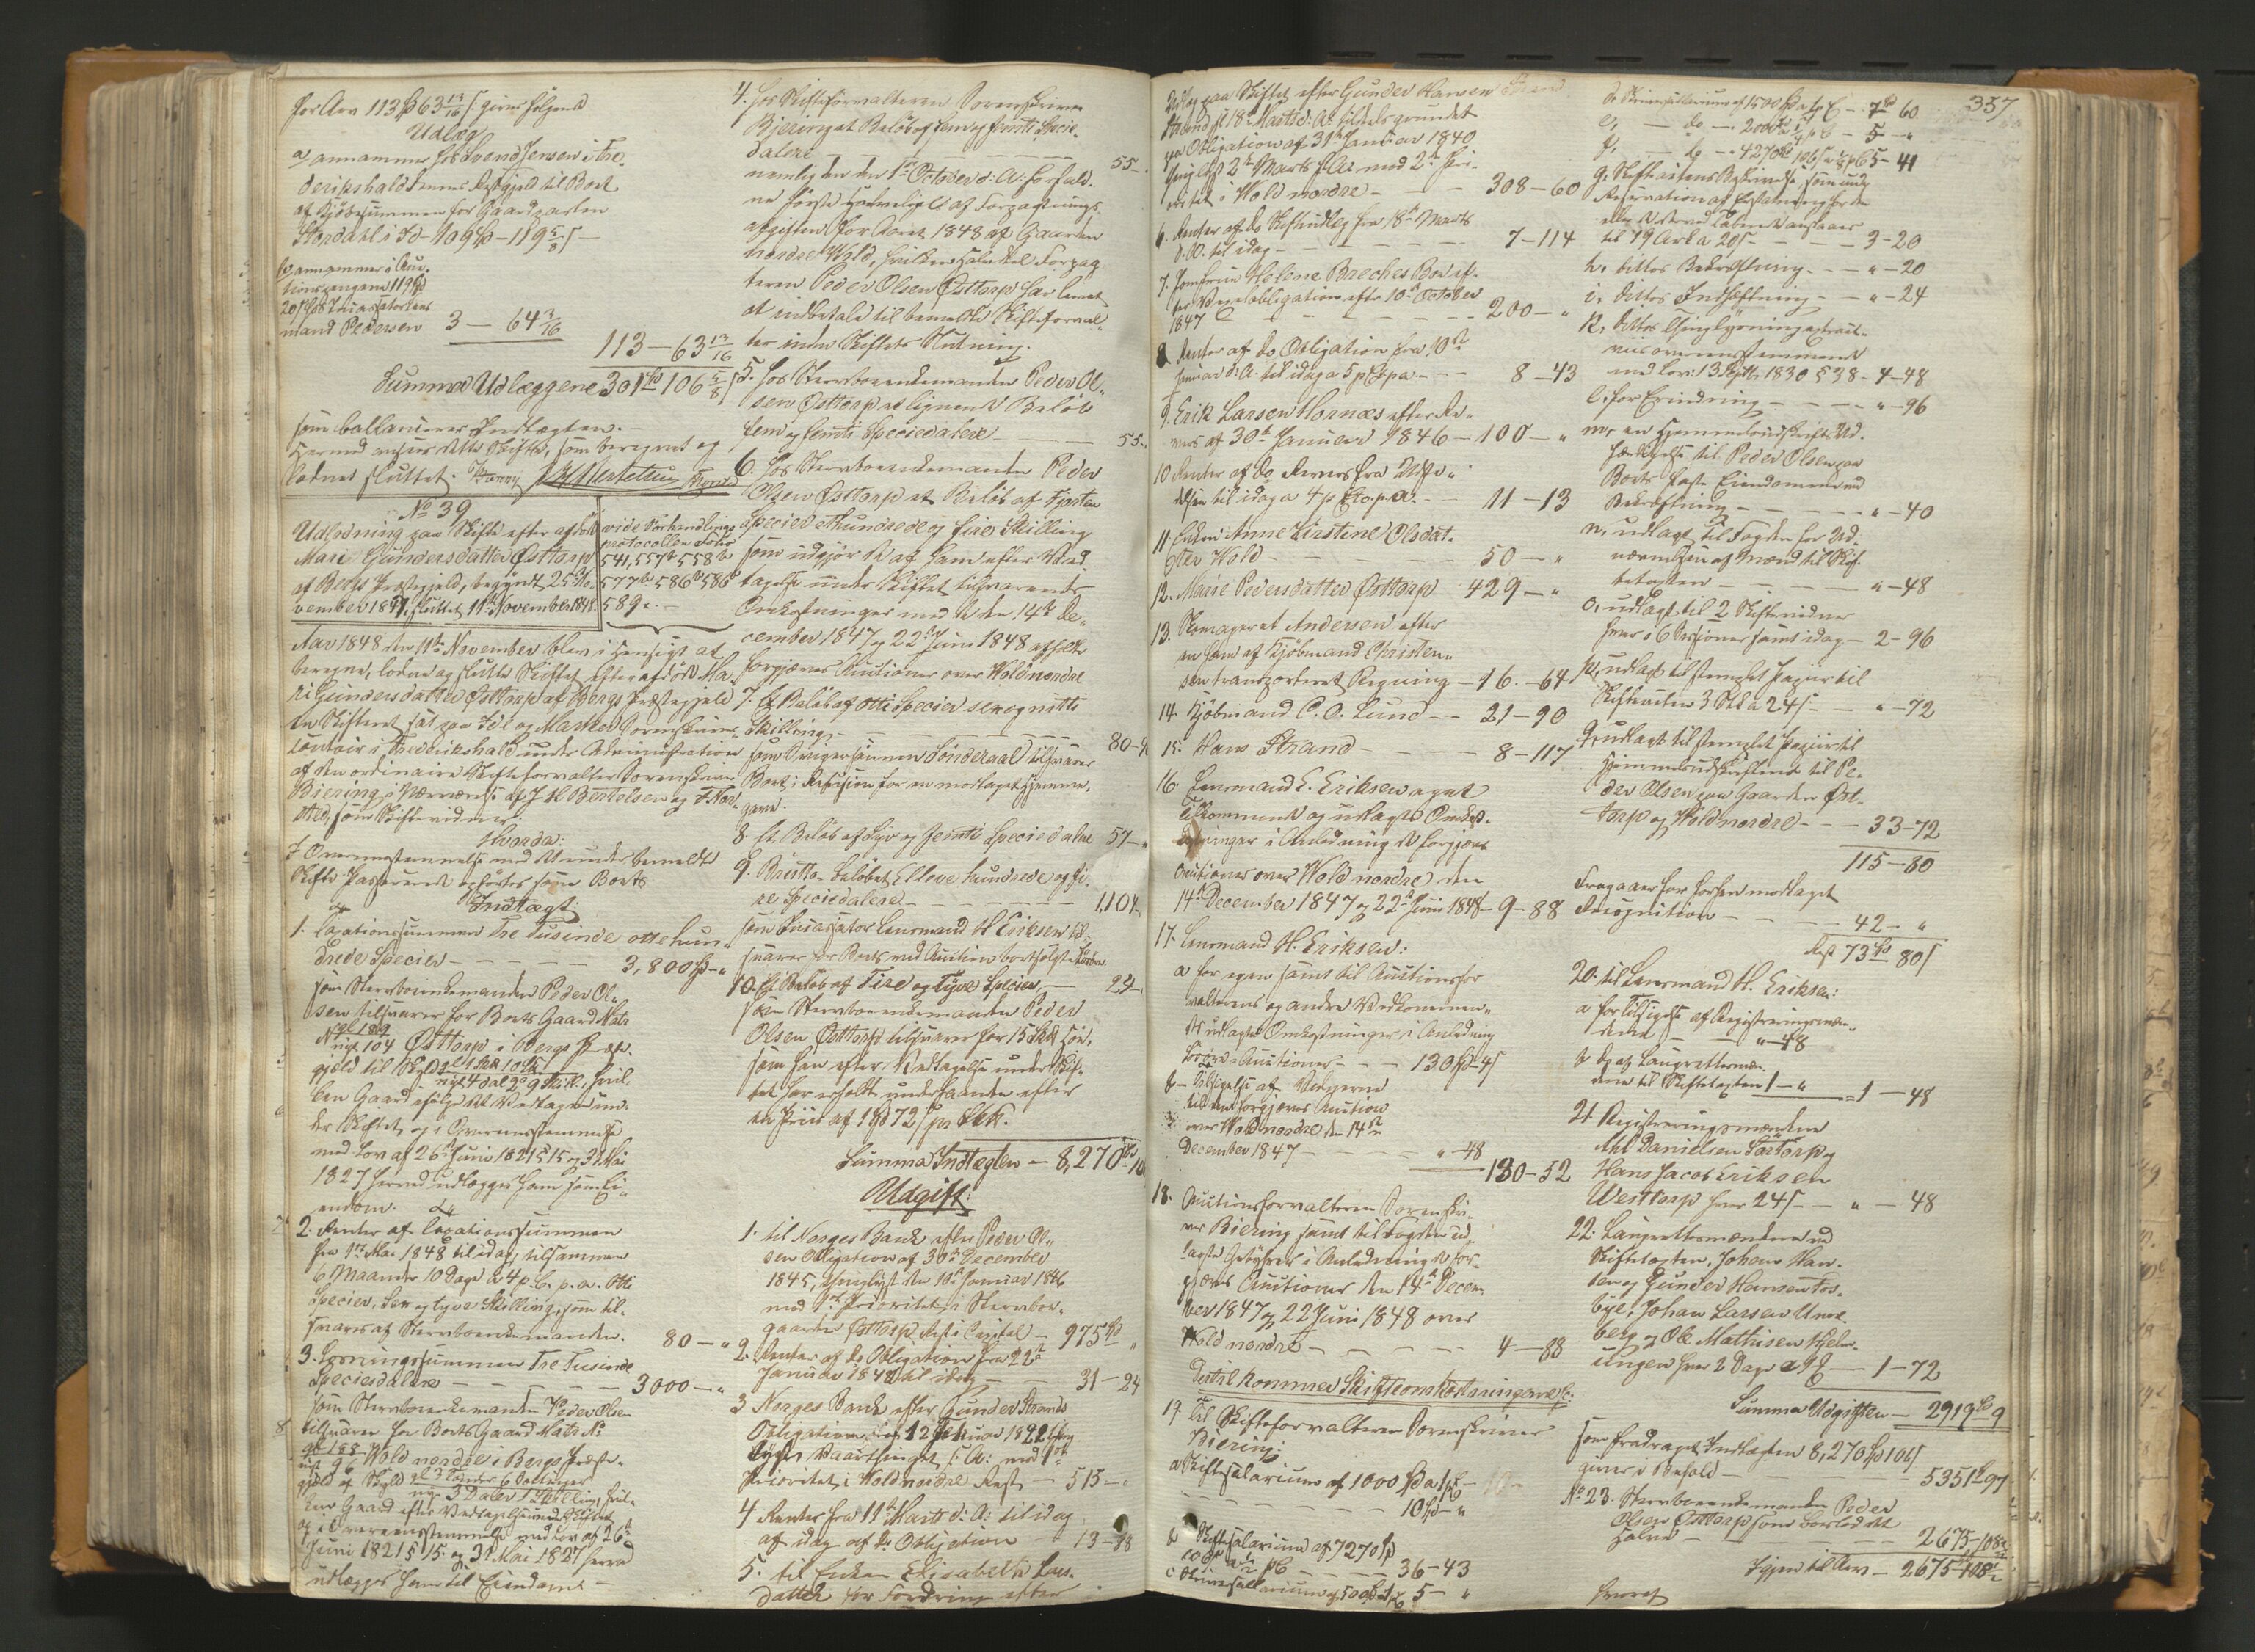 for Arv 113 63 13/16 s. gives følgende
Udlæg
a, annammer hos Svend Jensen i Fre-
derikshald hennes Restgjeld til Boet
af Kjøbesummen for Gaardparten
Stordahl i Id - 109 - 119 5/8 s -
b, annammer i Auc-
tionspengene 119
20 s hos Incassator Lens-
mand Pedersen 3 - 64 3/16
113 - 63 13/16
Summa Udlæggene 301 106 5/8 s
som ballancerer Indtægten. -
Hermed ansees dette Skifte, som beregnet og
lodnet sluttet.
No 39
Udlodning paa Skifte efter afdøde
Mari Gundersdatter Østtorp
af Bergs Præstegjeld, begyndt 25 No-
vember 1847, sluttet 11te November 1848.
vide Forhandlings
protocollen Folio
541, 557 558
577 586 586
589. -
Aar 1848 den 11te November blev i Henseigt at
beregne, lodne og slutte Skiftet efter afdøde Ma-
ri Gundersdatter Østtorp af Bergs Præstegjeld
en Skifteret sat paa Idd og Markers Sorenskriver-
Contoir i Frederikshald under Administration
af den ordinaire Skifteforvalter Sorenskriver
Biering i Nærværelse af J H Bertelsen og
som Skiftevidner.
Hvorda:
I Overeensstemmelse med det under bemeldte
Skifte Passerede opførtes som Boets
Indtægt:
1. Taxationssummen Tre Tusinde ottehun-
drede Species - - - - - 3,800 - "
som Stervboenkemanden Peder Ol-
sen tilsvarer for Boets Gaard Matr
No gl 189
nyt 104 Østtorp i Bergs Præste-
gjeld til Skyld
len Gaard ifølge det Vedtagne un-
der Skiftet og i Overeensstemmelse
med Lov af 26de Juni 1821 § 15 og 31 Mai
1827 herved udlægges ham som Ei-
endom.
2. Renter af Taxationssummen
fra 1ste Mai 1848 til idag tilsammen
6 Maaneder 10 Dage a 4 p. C. p. a. Otti
Species, Sex og tyve Skilling, som til-
svares af Stervboenkemanden. 80 - "
3. Løsningssummen Tre Tusinde
Speciesdalere - - - - - 3000 - "
som Stervboenkemanden Peder Olsen
tilsvarer for Boets Gaard Matr No
gl 188
nyt 96 Wold nordre i Bergs Præste-
gjeld af Skyld gl 3 Tønder 6 Sættinger
ny 3 Daler 1 Skilling, hvil-
ken Gaard efter Vedtagelse under Skiftet
og i Overeensstemmelse med Lov af 26de
Juni 1821 § 15. og 31 Mai 1827 herved
udlægges ham til Eiendom -
4. hos Skifteforvalteren Sorenskriver
Biering et Beløb af fem og femti Specie-
dalere - - - - - 55 -
nemlig den den 1ste October d: A: forfald-
ne første Halvedeel af Forpagtnings
afgiften for Aaret 1848 af Gaarden
nordre Wold, hvilken Halvdel Forpag
teren Peder Olsen Østtorp har lovet
at indbetale til bemeldte Skifteforval-
ter inden Skiftets Slutning.
5. hos Stervboenkemanden Peder Ol-
sen Østtorp et lignende Beløb
fem og femti Speciedalere - - 55.
6. hos Stervboenkemanden Peder
Olsen Østtorp et Beløb af Fjorten
Species ethundrede og fire Skilling
som udgjør de af ham efter Ved-
tagelse under Skiftet tilsvarende
Omkostninger med de den 14de De-
cember 1847 og 22de Juni 1848 afholdte
forgjæves Auctioner over Wold nordre
7. Et Beløb af otti Species sexognitti
Skilling - - - - - 80 - 9
som Svigersønnen Sønderaal tilsvarer
Boet i Refusion for en modtaget Hjemme-
gave.
8. Et Beløb af Syv og femti Speciedaler 57 - "
9. Brutto Beløbet Elleve hundrede og fi-
re Speciedalere - - - - 1,104 -
som Incassator Lensmand H Eriksen til-
svarer for Boets ved Auction bortsolgte Løsøre
10. Et Beløb af Fire og Tyve Species, - 24 -
som Stervboenkemanden Peder
Olsen Østtorp tilsvarer for 15 Skk Høe,
som han efter Vedtagelse under Skif-
tet har erholdt underhaanden efter
en Priis af 1 72 s pr Skk.
Summa Indtægten - 8,270 10
Udgift:
1. til Norges Bank efter Peder Ol-
sens Obligation af 30te December
1845, thinglyst den 10de Januar 1846
med 1ste Prioritet i Stervboe-
gaarden Østtorp Rest i Capital - 975 "
2. Renter af do Obligation fra 22de
Januar 1848 til idag - - 31 - 24
3 Norges Bank efter Gunder Strands
Obligation
lyst Vaarthinget s: A: med 1ste
Prioritet i Wold nordre Rest - 515 - "
4 Renter fra 11te Marts d: A: til idag
af idag af do Obligation - 13 - 88
5. til Enken Elisabeth Lars-
datter for Fordring efter
Udlæg paa Skiftet efter Gunder Hansen
Strand 18de Marts d: A: tildels grundet
paa Obligation af 31te Januar 1840
thinglyst 2den Marts s. A. med 2den Pri-
oritet i Wold nordre - - - 308 - 60
6. Renter af do Skifteudlæg fra 18de Marts
d. A. til idag - - - - - 7 - 114
7. Jomfrue Helene Breches Boe ef-
ter Vexelobligation efter 10de October
1847 - - - - 200 - "
8. Renter af do Obligation fra 10de
Januar d: A. til idag a 5 p C p a - - 8 - 43
9. Erik Larsen Hornæs efter Re-
vers af 30te Januar 1846 - 100 - "
10 Renter af do Revers fra Udste-
delsen til idag a 4 p C p a. - - 11 - 13
11. Enken Anne Kirstine Olsdat-
ter Wold - - - 50 - "
12. Marie Pedersdatter Østtorp 429 - "
13. Skomageret Andersen efter
en ham af Kjøbmand Christen-
sen transporteret Regning - 16. - 64
14. Kjøbmand C. O. Lund - - 21 - 90
15. Hans Strand - - - 8 - 117
16. Lensmand E. Eriksen
Tilkommende og udlagte Omkost-
ninger i Anledning de forgjæves
Auctioner over Wold nordre den
14de December 1847 og 22de Juni 1848 - 9 - 88
17. Lensmand H. Eriksen:
a for egne samt til Auctionsfor-
valterens og andre Vedkommen-
des udlagte Omkostninger i Anledning
Løsøre-Auctioner - - - 130 4 s
b - Tilsigelse af Vidnerne
til den forgjæves Auction
over Wold nordre den 14de
December 1847 - - - - " - 48
130 - 52
18. Auctionsforvalteren Sorenskri-
ver Biering samt til Fogden ud-
lagte Gebyhrer i Anledning de for-
gjæves Auctioner den 14de Decem-
ber 1847 og 22 Juni 1848 over
Wold nordre - - - - 4 - 88
Dertil kommer Skifteomkostningerne
19 Til Skifteforvalteren Sorenskriver
Biering:
a Skiftesalarium af 1000 a 1 p C -
10 - "
b Skiftesalarium af 7270
106 s a 1/2 p C - - - 36 - 43
c Skriversalarium af 500 a 1 p C 5 - "
357
d Skriversallarium af 1500 a 1/2 p C - 7 60
e, - do - 2000 a 1/4 p C - 5 - "
f, - do - 4270 106 s a 1/8 p C 5 - 41
g, Skifteactens Beskrivelse, som under
Reservation af Erstatning for den
til 19 Ark a 20 s - - - 3 - 20
h, dittos Bekræftning - - - " - 20
i, dittos Indhæftning - - " - 24
k, dittos Thinglysningsextract-
viis overeensstemmende
med Lov: 13 Septbr 1830 § 38 - 4 - 48
l, for Erindring - - - - " - 96
m, en Hjemmelsudskrifts Ud-
færdigelse til Peder Olsen paa
Boets faste Eiendomme med
Bekræftning - - - - " - 40
n, udlagt til Fogden for Ud-
nævnelsen af Mænd til Skif-
tetaxten - - - " - 48
o, udlagt til 2 Skiftevidner
hver i 6 Sessioner samt idag - 2 - 96
p, udlagt til stemplet Papiir til
Skifteacten 3 Ark a 24 s - - " - 72
q, udlagt til stemplet Papiir til
Hjemmelsudskriftene til Pe-
der Olsen paa Gaarden Øst-
torp og Wold nordre - - 33 - 72
115 - 80
Fragaaer for forhen modtaget
Recognition - - - - 42 - "
Rest 73 80 s
20. til Lensmand H. Eriksen:
a for Tilsigelse af Registreringsmæn-
dene - - " - 48
b do af Laugrettemæn-
dene til Skiftetaxten 1 - " = 1 - 48
21 Registreringsmændene
Abl Danielsen Tortorp og
Hans Jacob Eriksen
Westtorp hver 24 s - - " - 48
22. Laugrettesmændene ved
Skiftetaxten, Johan Han-
sen og Gunder Hansen Fos-
bye, Johan Larsen
berg og Ole Mathisen
ungen hver 2 Dage - 1 - 72
Summa Udgiften - 2919 9
som fradraget Indtægten 8,270 106 s
giver i Behold - - - 5351 97
No 23. Stervboenkemanden Peder
Olsen Østtorp som
Halve - - - 2675 - 108
Igjen til Arv - 2675 - 108
hvoraf